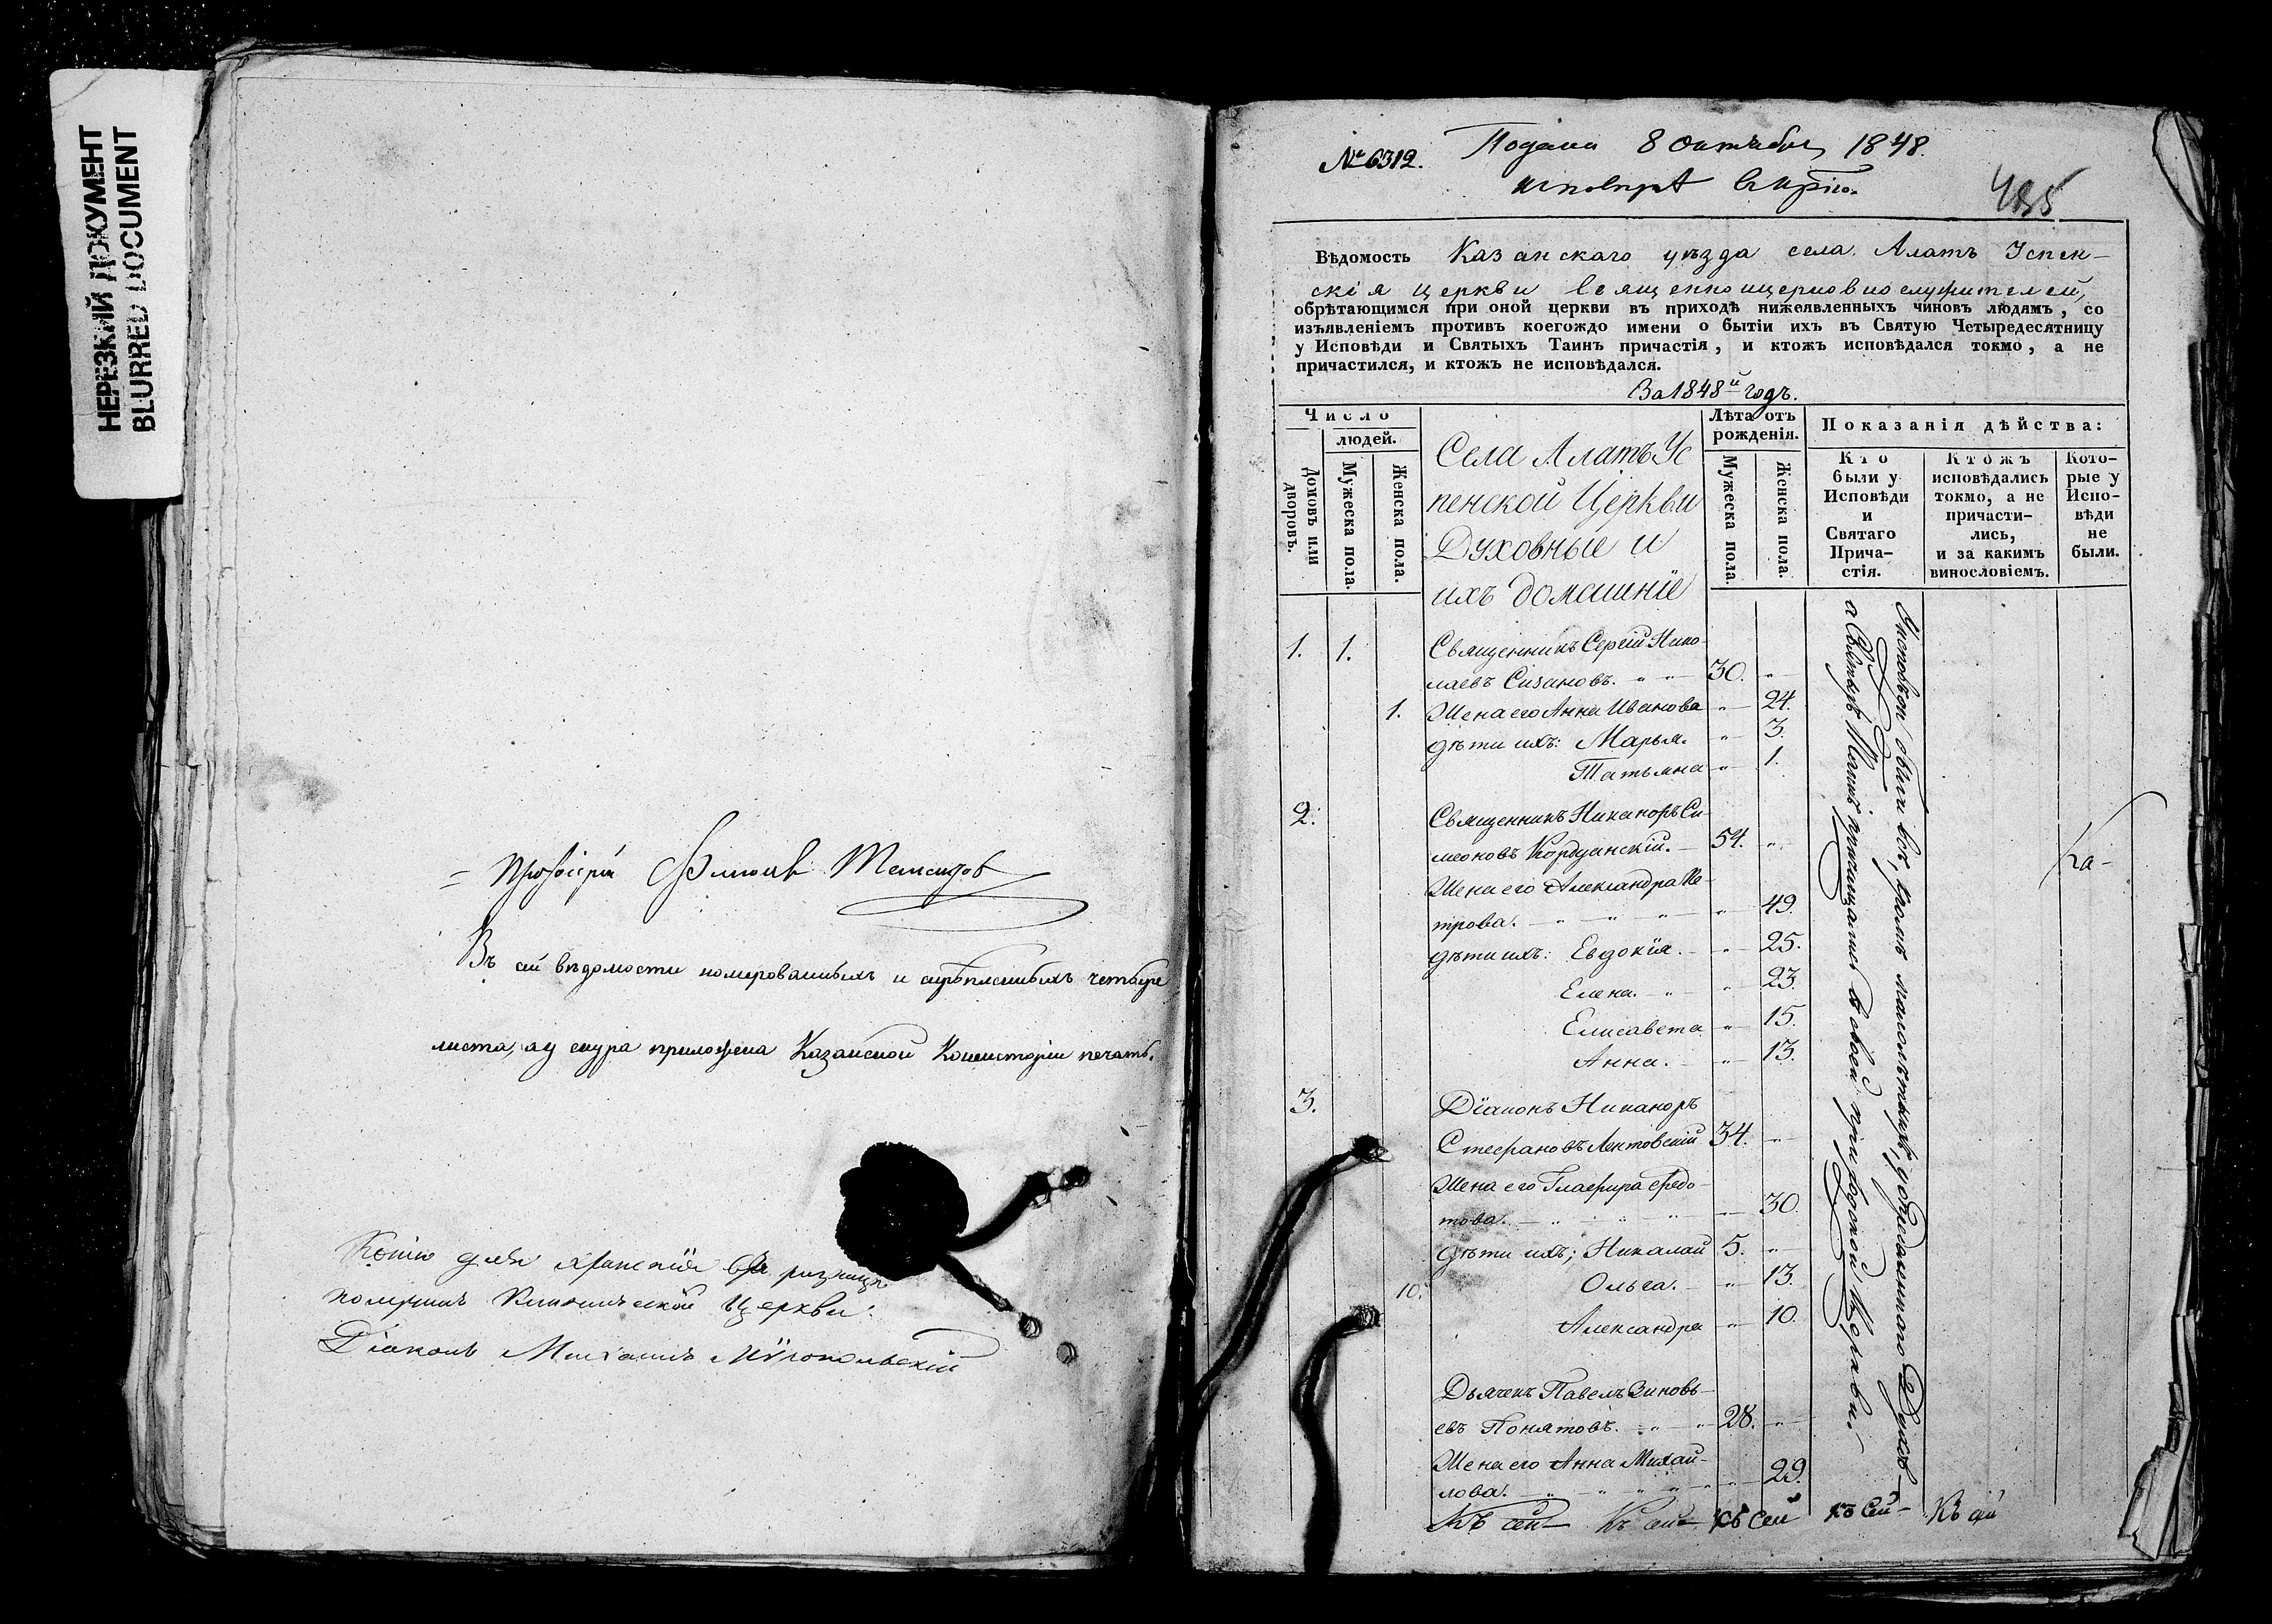 НЕРЕЗКИЙ ДОКУМЕНТ
BLURRED DOCUMENT
Въ сей вѣдомости номерованныхъ и скрѣпленныхъ четыре
листа, а у снура приложена Казанской Консисторіи печать.
Копію для храненія въ ризницѣ
получилъ церкви:
Діаконъ Михаилъ
№ 6312.
Подана 8 Октября 1848.
485
Вѣдомость Казанскаго уѣзда села Алатъ Успен-
скія церкви священноицерковнослужителей,
обрѣтающимся при оной церкви въ приходѣ нижеявленныхъ чиновъ людямъ, со
изъявленіемъ противъ коегождо имени о бытіи ихъ въ Святую Четыредесятницу
у Исповѣди и Святыхъ Таинъ причастія, и ктожъ исповѣдался токмо, а не
причастился, и ктожъ не исповѣдался.
За 1848й годъ.
Число
людей.
Домовъ или дворовъ.
Мужеска пола.
Женска пола.
Села Алатъ Ус
пенской Церкви
Духовные и
ихъ домашніе
Лѣта отъ
рожденія.
Мужеска пола.
Женска пола.
Показанія дѣйства:
Кто
были у
Исповѣди
и
Святаго
Прича-
стія.
Ктожъ
исповѣдались
токмо, а не
причасти-
лись,
и за какимъ
винословіемъ.
Кото-
рые у
Испо-
вѣди
не
были.
1. 1. Священникъ Сергій Нико-
лаевъ Сизановъ. 30.
1. Жена его Анна Иванова 24.
дѣти ихъ: Марья. 3.
Татьяна 1.
2. Священникъ Никаноръ Си-
меоновъ Кордуанскій. 54.
Жена его Александра Пе-
трова. 49.
дѣти ихъ: Евдокія. 25.
Елена. 23.
Елисавета 15.
Анна. 13.
3. Діаконъ Никаноръ
Стефановъ Лентовскій 34.
Жена его Глафира Федо-
това. 30.
дѣти ихъ; Николай 5.
10. Ольга. 13.
Александра 10.
Дьячекъ Павелъ Зиновь-
евъ Понятовъ. 28.
Жена его Анна Михай-
лова. 29.
Къ сей Къ сей Къ сей къ сей Къ сей
У исповѣди были всѣ, кромѣ малолѣтныхъ, у
а Святыхъ Таинъ причащались въ своей приходской Церкви.